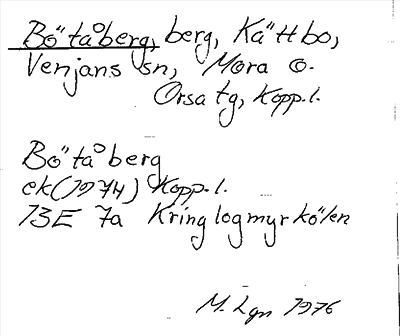 Bötåberg, berg, Kättbo,
Venjans sn, Mora o.
Orsa tg, Kopp.l.
Bötåberg
ek (1974) Kopp.l.
13E 7a Kringlogmyrkölen
M. Lgn 1976